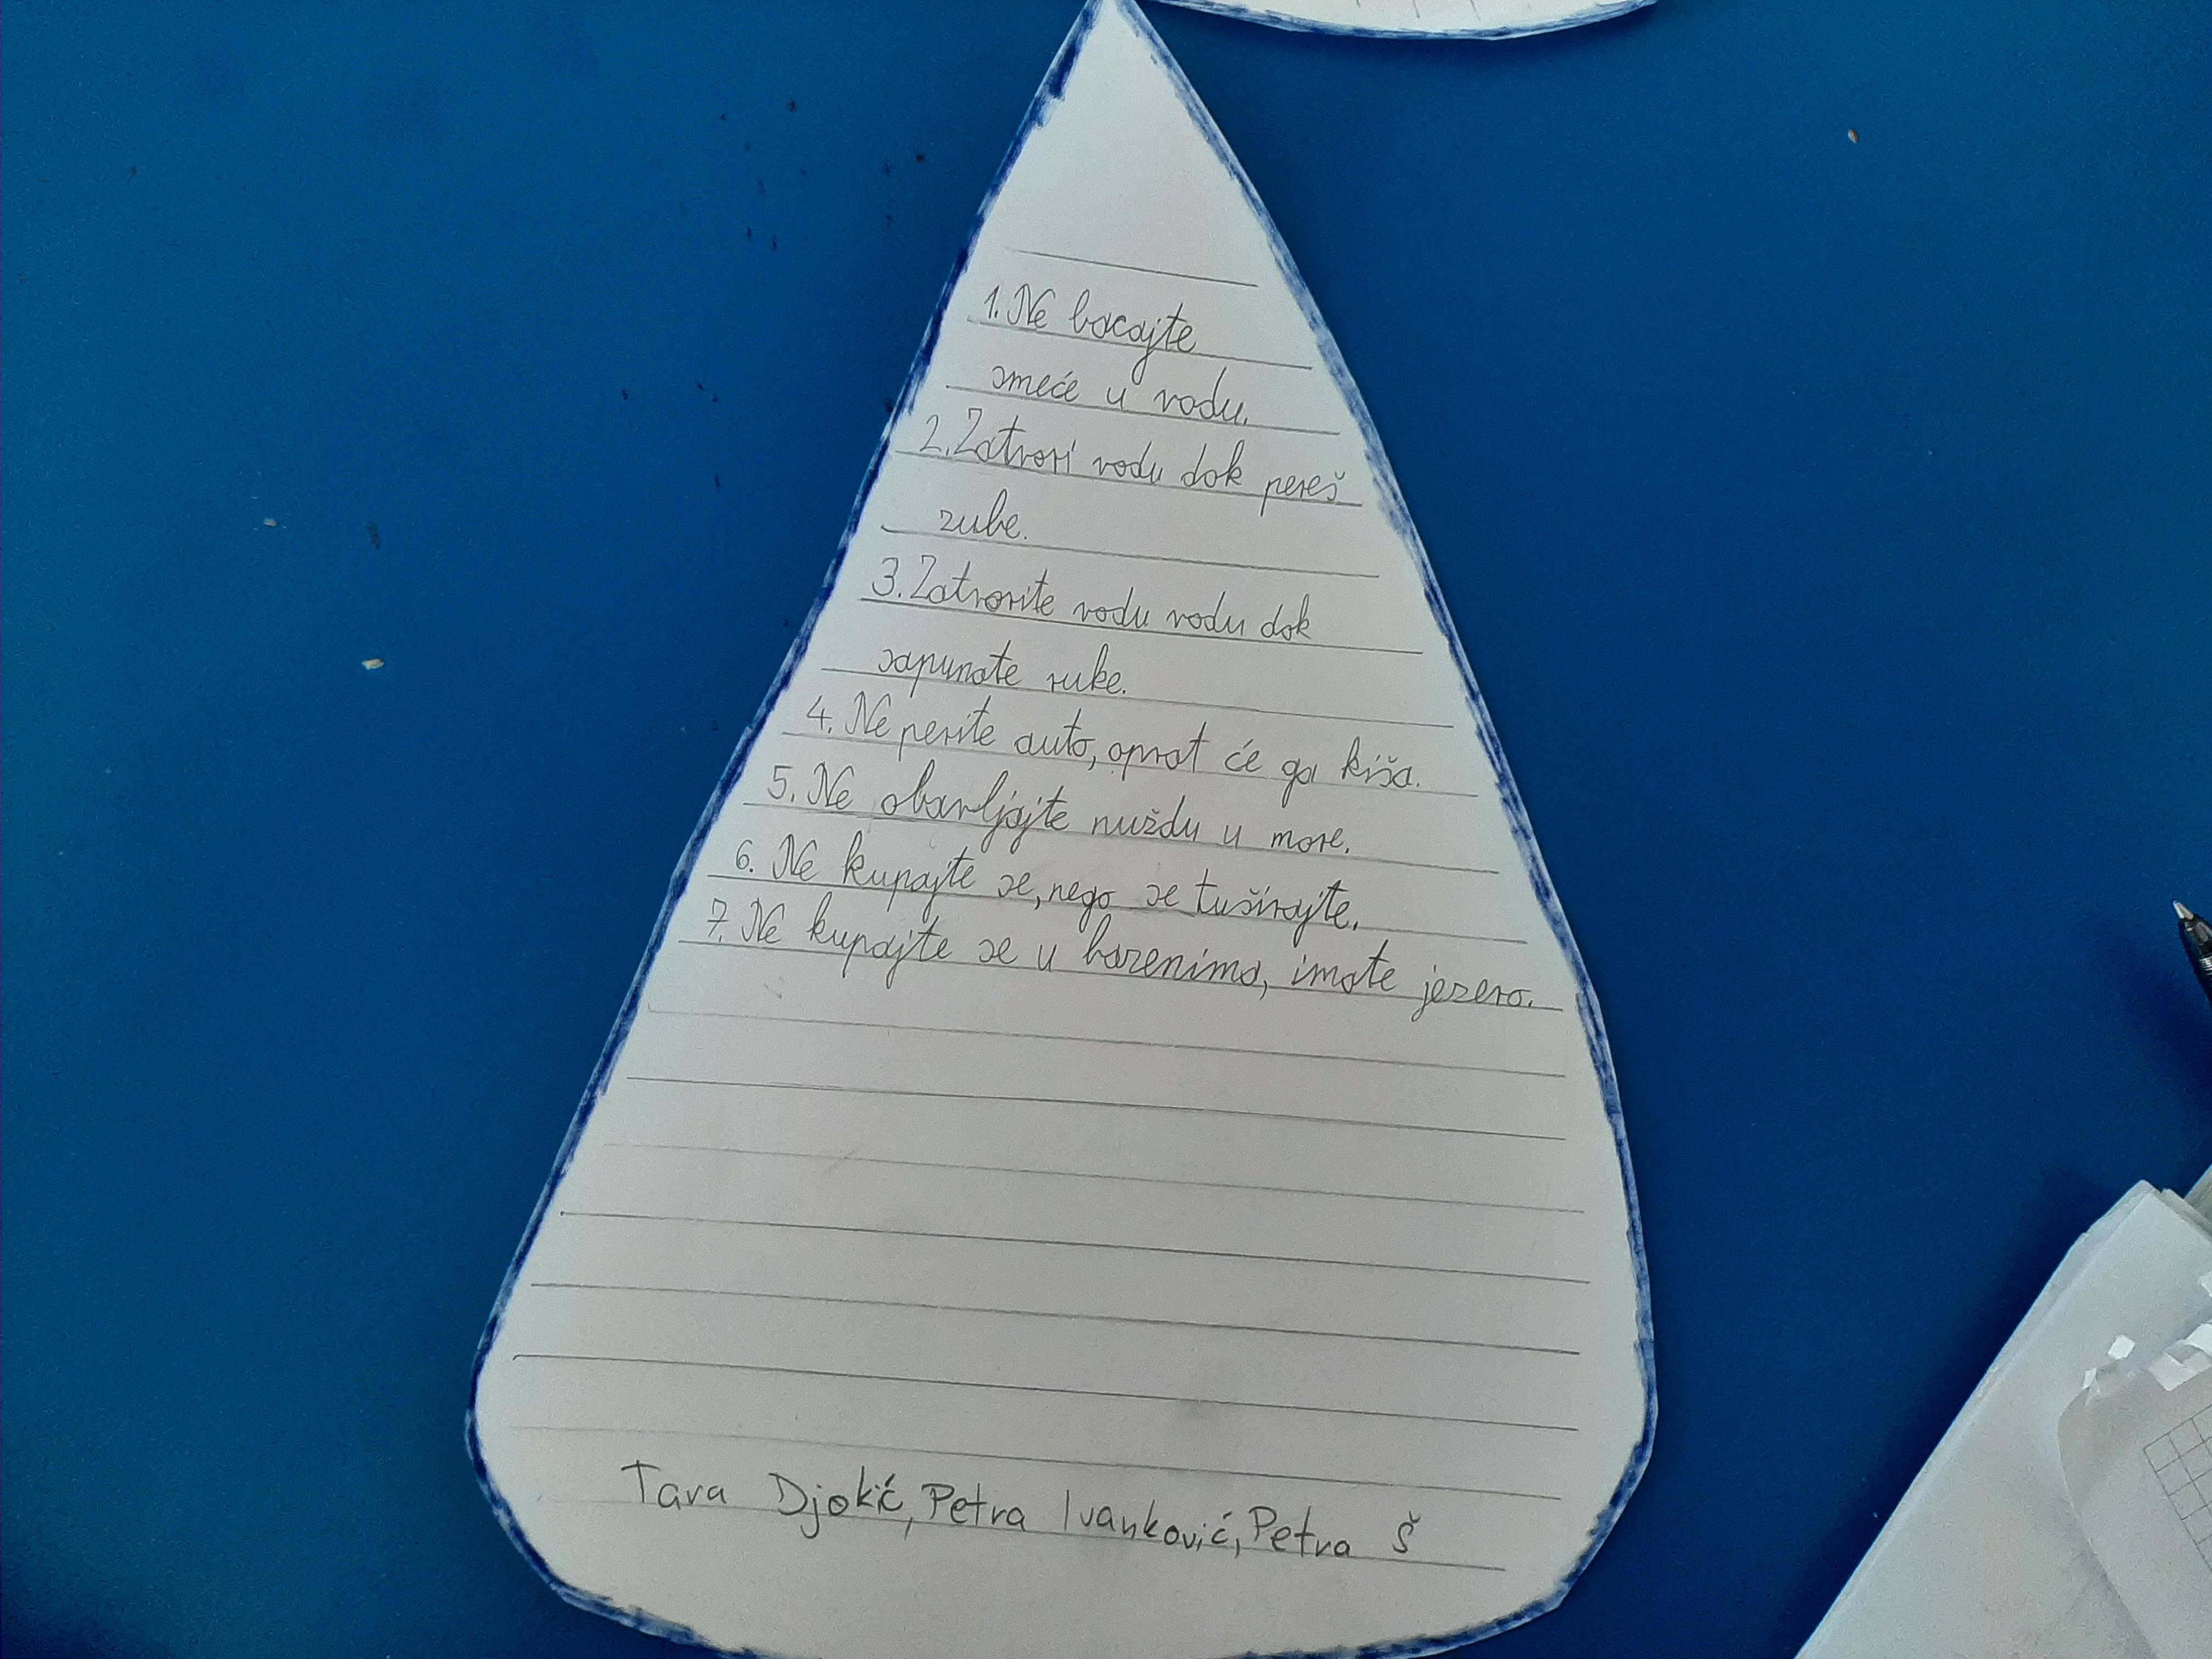 1. Ne bacajte
smeće u vodu.
2. Zatvori vodu dok pereš
zube.
3. Zatvorite vodu vodu dok
sapunate ruke.
4. Ne perite auto, oprat će ga kiša.
5. Ne obavljajte nuždu u more.
6. Ne kupajte se, nego se tuširajte.
7. Ne kupajte se u bazenima, imate jezero.
Tara Djokić, Petra Ivanković, Petra Š